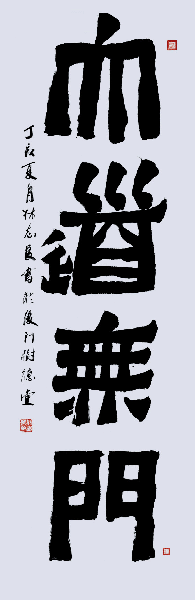 大道無門
丁亥夏月林志良書於廈門樹德堂